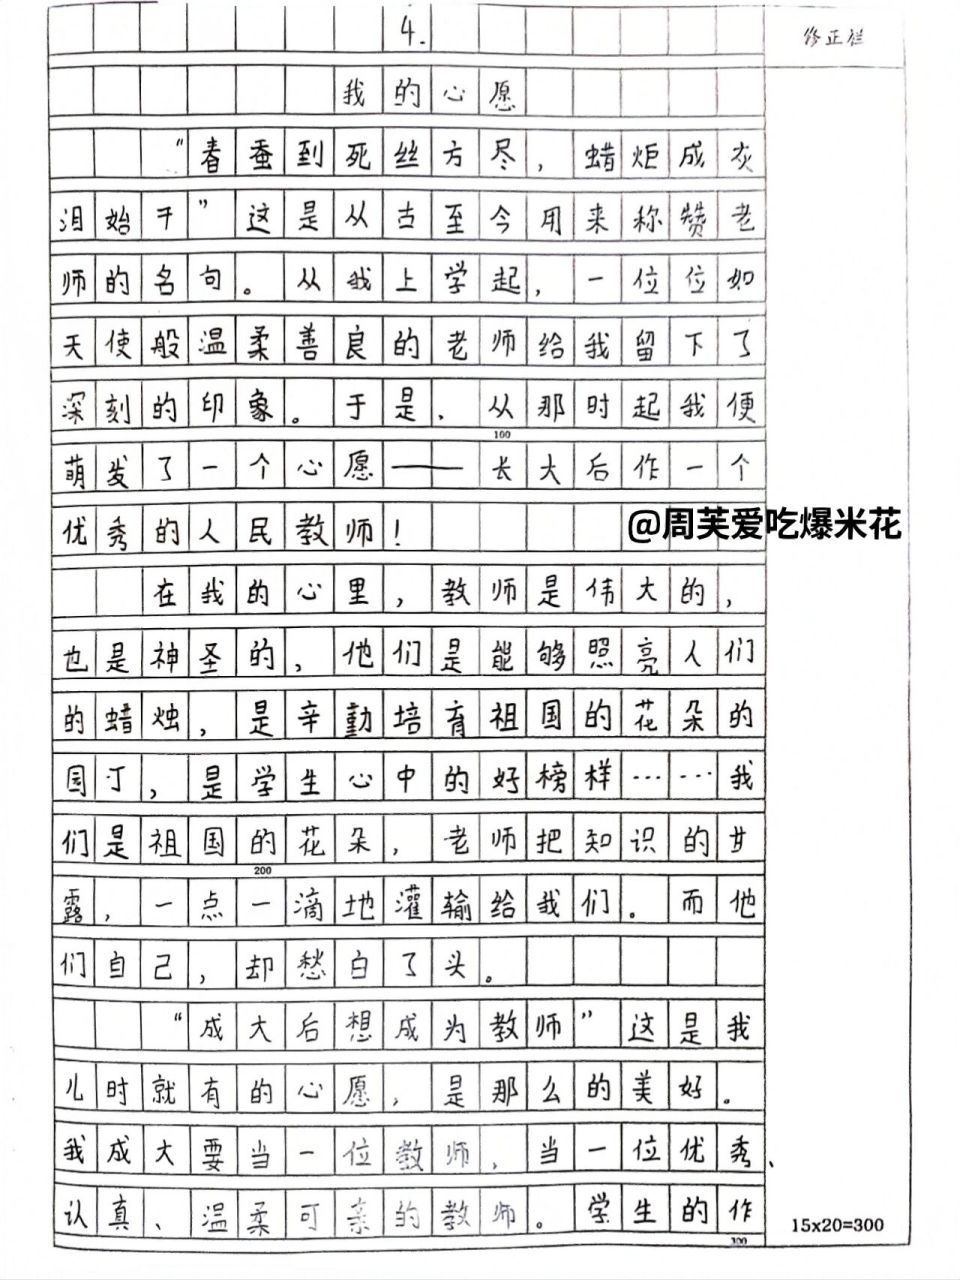 4.
修正栏
我的心愿
“春蚕到死丝方尽，蜡炬成灰
泪始干”这是从古至今用来称赞老
师的名句。从我上学起，一位位如
天使般温柔善良的老师给我留下了
深刻的印象。于是、从那时起我便
100
萌发了一个心愿——长大后作一个
优秀的人民教师！
@周芙爱吃爆米花
在我的心里，教师是伟大的，
也是神圣的，他们是能够照亮人们
的蜡烛，是辛勤培育祖国的花朵的
园丁，是学生心中的好榜样……我
们是祖国的花朵，老师把知识的甘
200
露，一点一滴地灌输给我们。而他
们自己，却愁白了头。
“成大后想成为教师”这是我
儿时就有的心愿，是那么的美好。
我成大要当一位教师，当一位优秀、
认真、温柔可亲的教师。学生的作
300
15x20=300